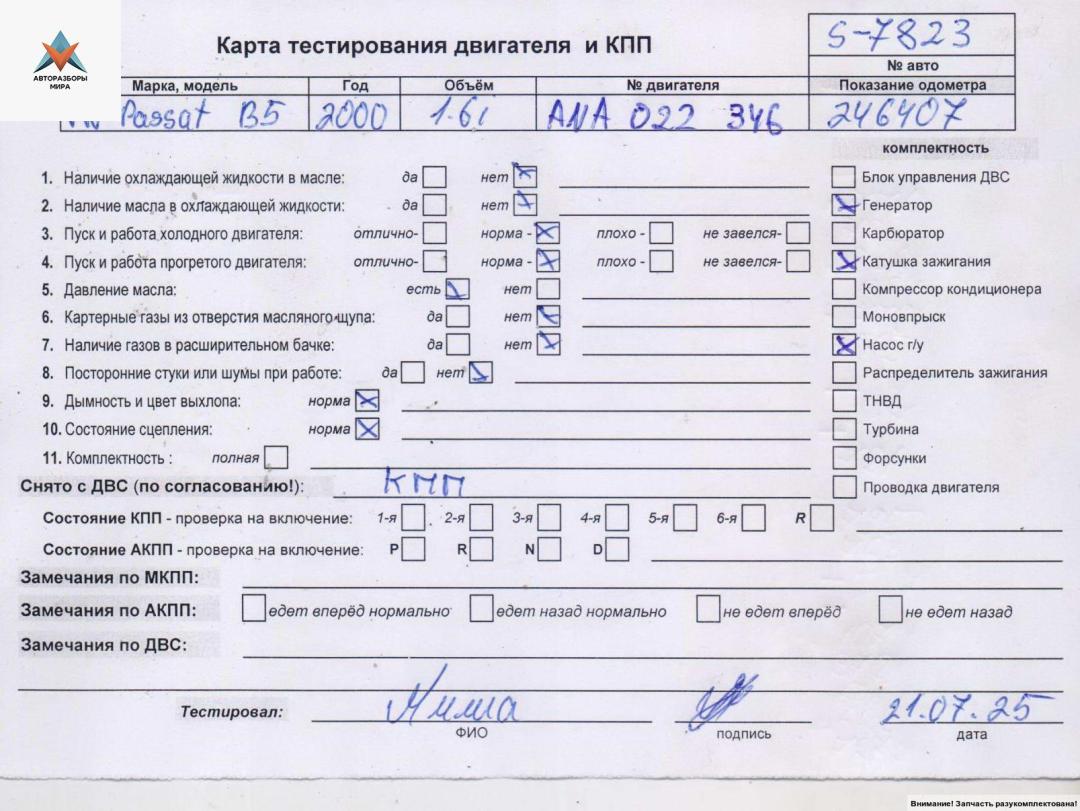 АВТОРАЗБОРЫ
МИРА
Карта тестирования двигателя и КПП
S-7823
№ авто
Марка, модель Год Объём № двигателя Показание одометра
Passat B5 2000 1.6i ANA 022 346 246407
комплектность
1. Наличие охлаждающей жидкости в масле: да нет Блок управления ДВС
2. Наличие масла в охлаждающей жидкости: да нет Генератор
3. Пуск и работа холодного двигателя: отлично- норма - плохо - не завелся- Карбюратор
4. Пуск и работа прогретого двигателя: отлично- норма - плохо - не завелся- Катушка зажигания
5. Давление масла: есть нет Компрессор кондиционера
6. Картерные газы из отверстия масляного щупа: да нет Моновпрыск
7. Наличие газов в расширительном бачке: да нет Насос г/у
8. Посторонние стуки или шумы при работе: да нет Распределитель зажигания
9. Дымность и цвет выхлопа: норма ТНВД
10. Состояние сцепления: норма Турбина
11. Комплектность : полная Форсунки
Снято с ДВС (по согласованию!): КПП Проводка двигателя
Состояние КПП - проверка на включение: 1-я 2-я 3-я 4-я 5-я 6-я R
Состояние АКПП - проверка на включение: P R N D
Замечания по МКПП:
Замечания по АКПП: едет вперёд нормально едет назад нормально не едет вперёд не едет назад
Замечания по ДВС:
Тестировал: 21.07.25
ФИО подпись дата
Внимание! Запчасть разукомплектована!